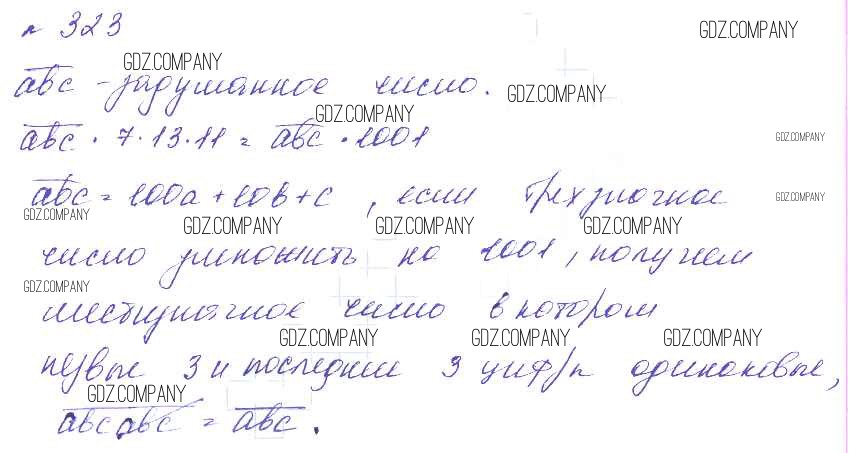 № 323
GDZ.COMPANY
GDZ.COMPANY
abc - задуманное число.
GDZ.COMPANY
GDZ.COMPANY
abc · 7 · 13 · 11 = abc · 1001
GDZ.COMPANY
abc = 100a + 10b + c, если трехзначное
GDZ.COMPANY
GDZ.COMPANY
GDZ.COMPANY
GDZ.COMPANY
GDZ.COMPANY
число умножить на 1001, получаем
GDZ.COMPANY
шестизначное число в котором
GDZ.COMPANY
GDZ.COMPANY
GDZ.COMPANY
первые 3 и последние 3 цифры одинаковые,
GDZ.COMPANY
abcabc = abc.